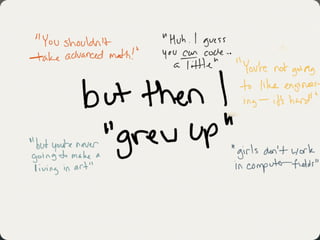 "You shouldn't
take advanced math!"
"Huh. I guess
you can code...
a little"
"You're not going
to like engineer-
ing - it's hard"
but then I
"grew up"
"but you're never
going to make a
living in art"
"girls don't work
in computer fields"